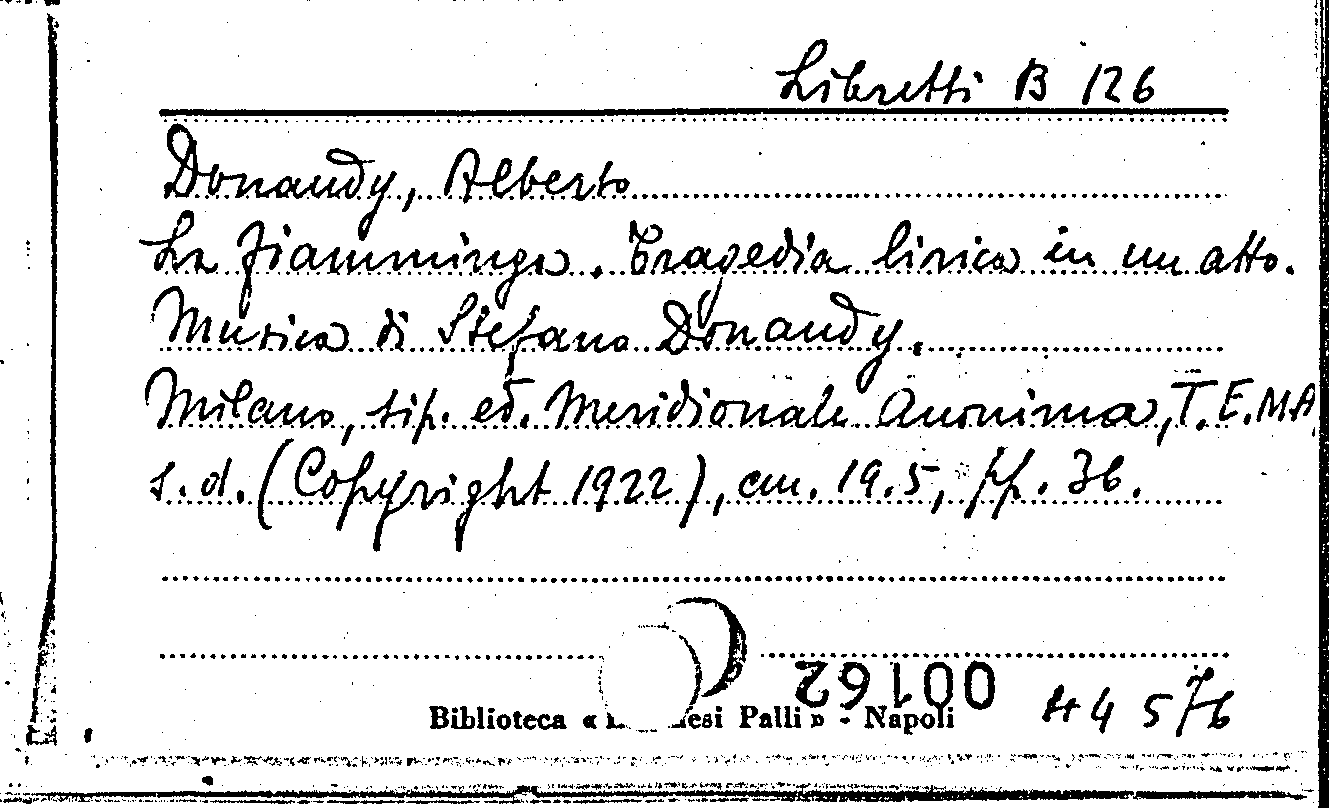 Libretti B 126
Donaudy, Alberto
La Fiamminga. Tragedia lirica in un atto.
Musica di Stefano Donaudy.
Milano, tip. ed. Meridionale Anonima, T.E.M.A,
s.d. (Copyright 1922), cm. 19.5, pp. 36.
00162
Biblioteca « esi Palli » - Napoli
H4 576